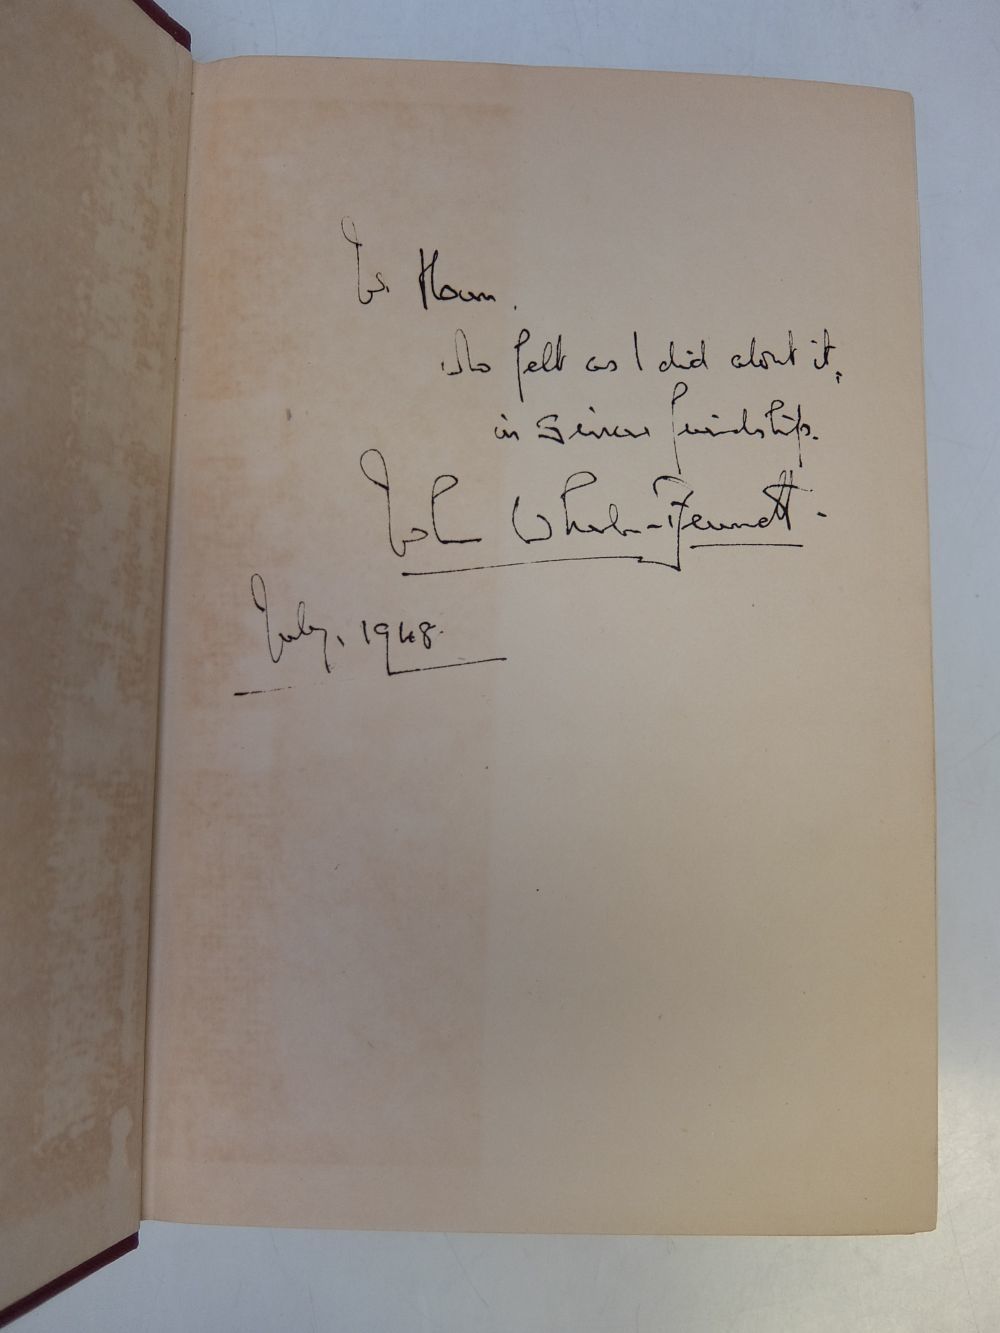 To.
who felt as I did about it,
in sincere friendship.
John Wheeler-Bennett.
July, 1948.